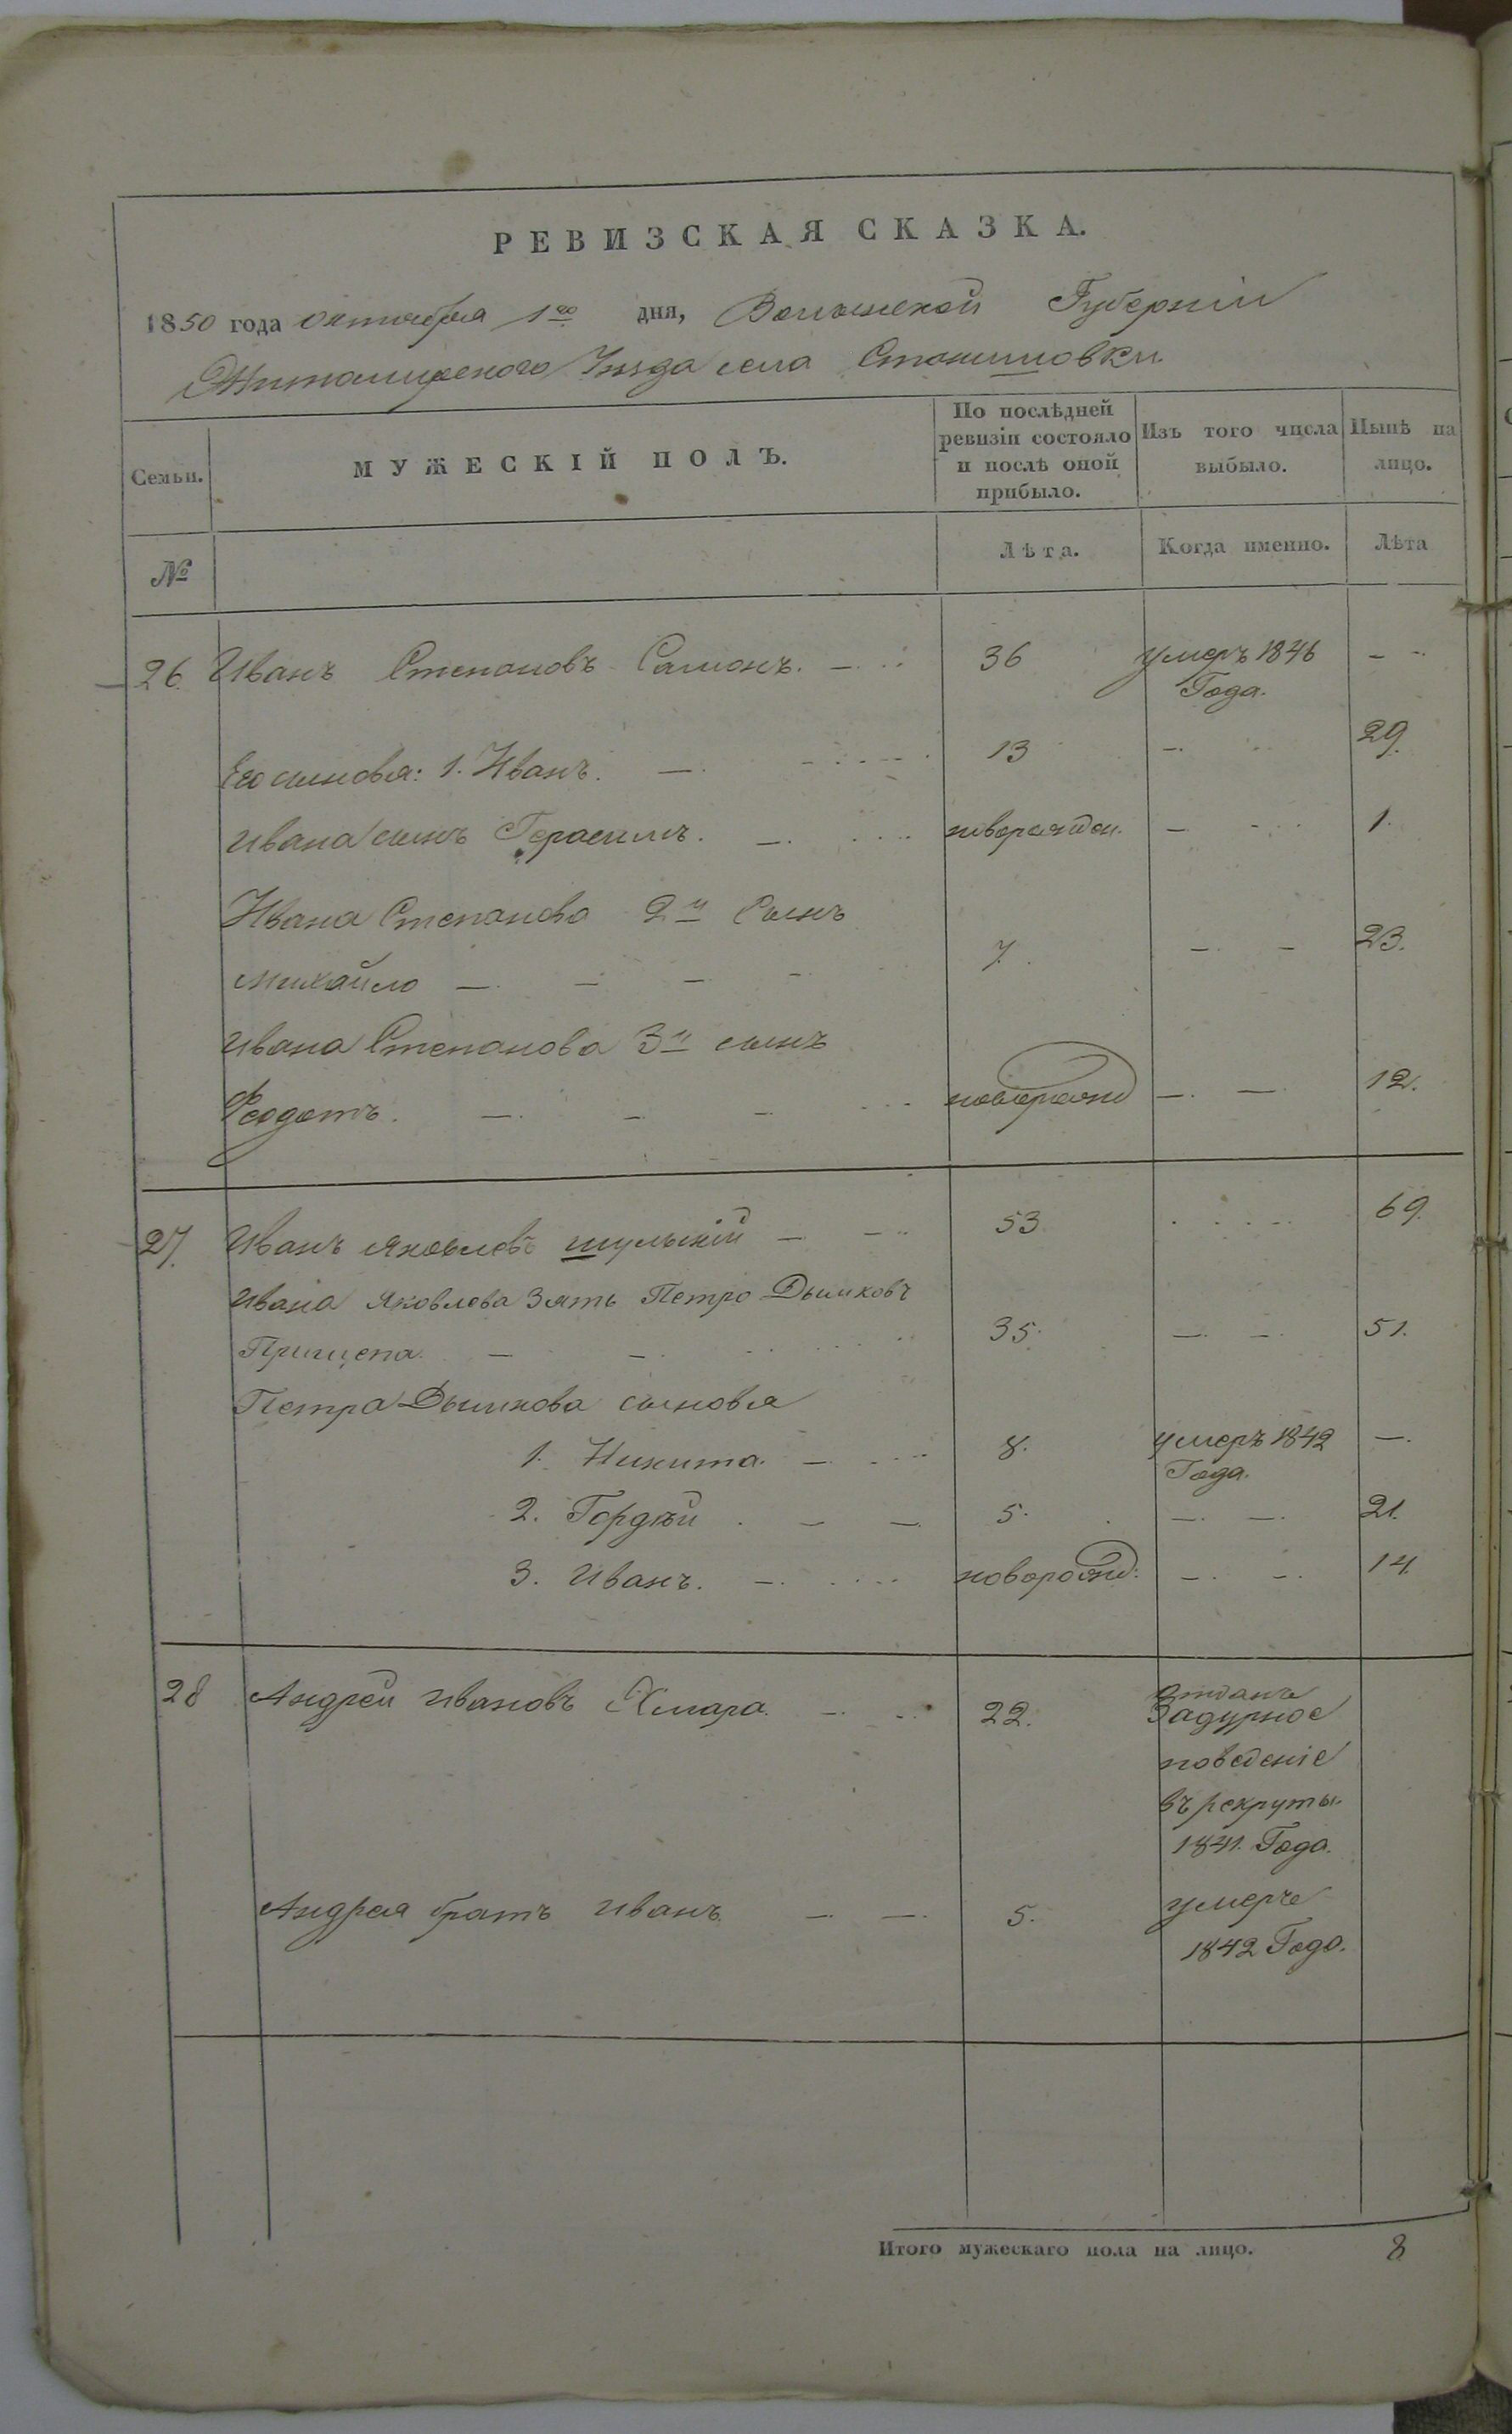 РЕВИЗСКАЯ СКАЗКА.
1850 года октября 1го дня, Волынской Губерніи
Житомирского Уѣзда села Станишовки
Семьи.
МУЖЕСКІЙ ПОЛЪ.
По послѣдней ревизіи состояло и послѣ оной прибыло.
Изъ того числа выбыло.
Нынѣ на лицо.
№
Лѣта.
Когда именно.
Лѣта
26 Иванъ Степановъ Самонъ. 36 умеръ 1846
Года.
Его сыновья: 1. Иванъ. 13 29.
Ивана сынъ Герасимъ. новорожден. 1.
Ивана Степанова 2й Сынъ
Михайло 7. 23.
Ивана Степанова 3й сынъ
Феодотъ. новорожд 12.
27. Иванъ Яковлевъ шульскій 53 69.
Ивана Яковлева Зять Петро Дымковъ
Прищепа. 35. 51.
Петра Дымкова сыновья
1. Никита. 8. умеръ 1842
Года.
2. Гордѣй 5. 21.
3. Иванъ. новорожд: 14
28 Андрей Ивановъ Хмара. 22. отданъ
Задурное
поведеніе
въ рекруты
1841. Года.
Андрея братъ Иванъ. 5. умеръ
1842 Года.
Итого мужескаго пола на лицо. 8